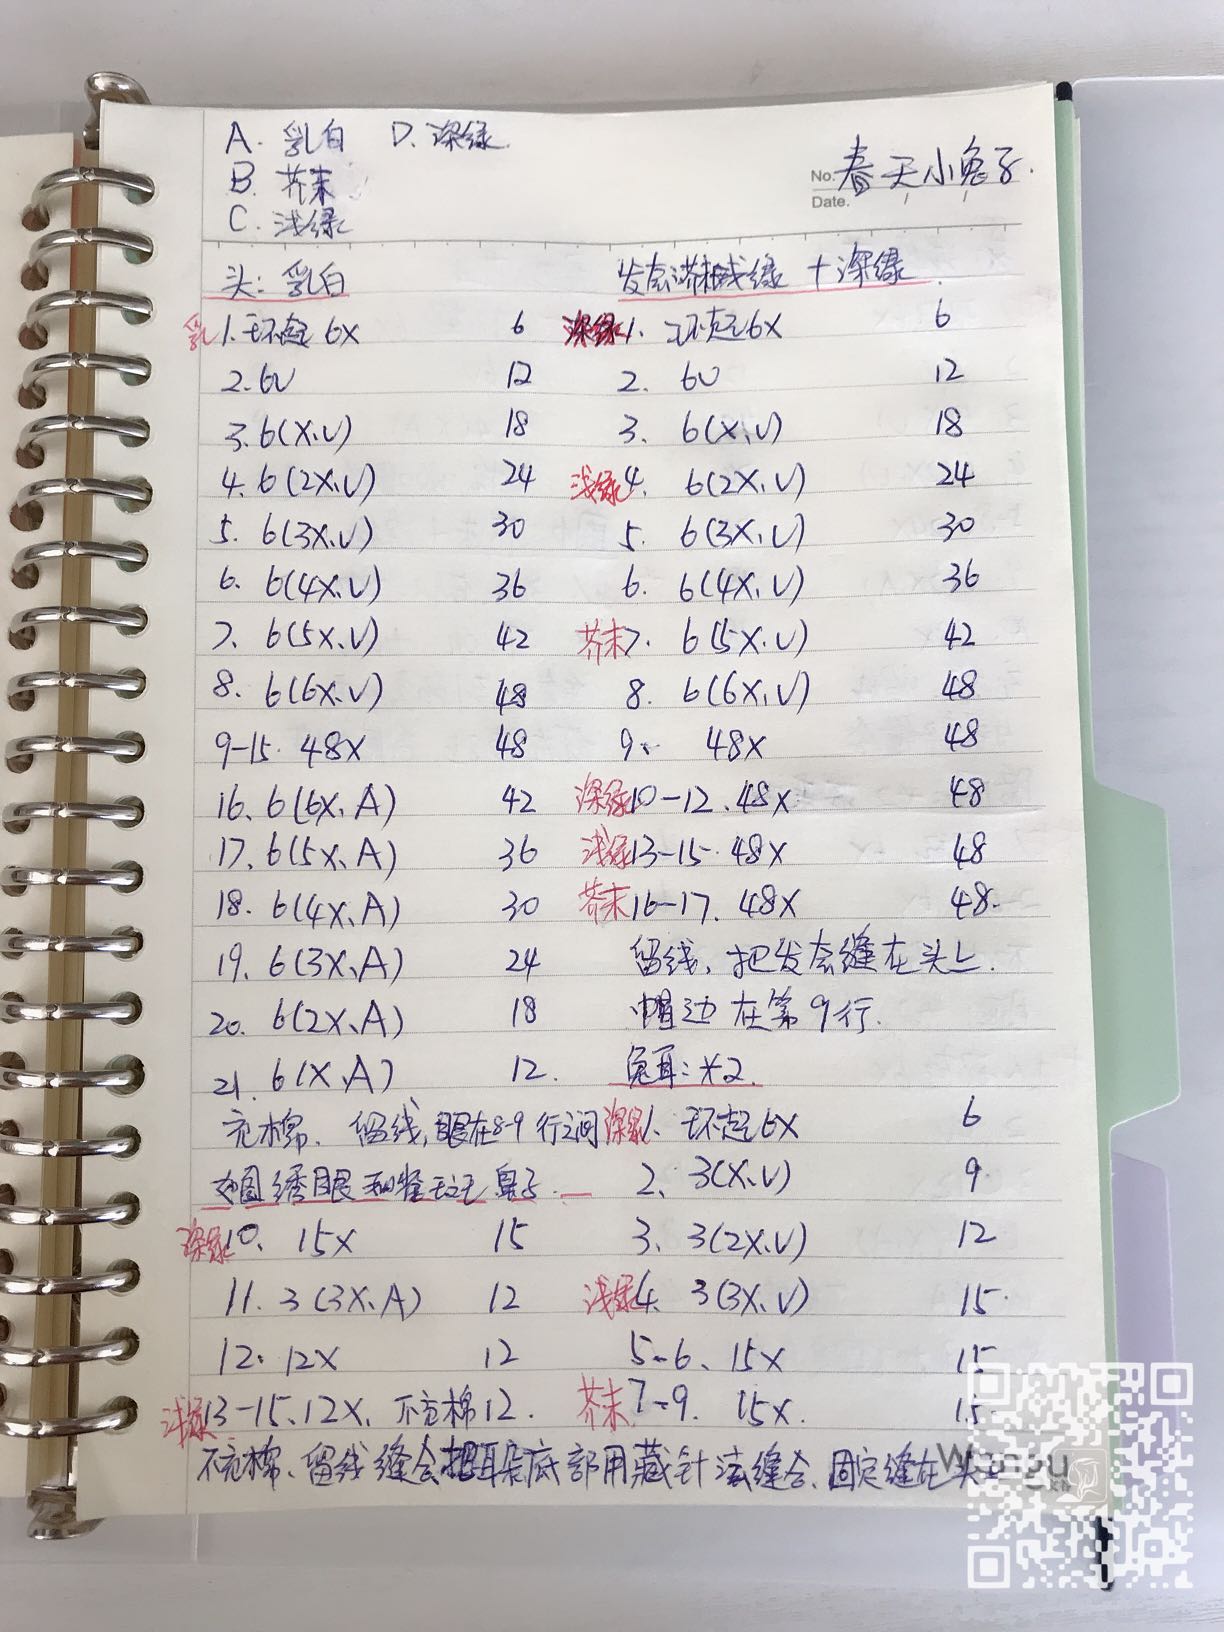 A. 乳白 D. 深绿
B. 芥末
C. 浅绿
No. 春天小兔子.
Date.
头: 乳白
乳 1. 环起 6X 6
2. 6V 12
3. 6(X、V) 18
4. 6(2X、V) 24
5. 6(3X、V) 30
6. 6(4X、V) 36
7. 6(5X、V) 42
8. 6(6X、V) 48
9-15. 48X 48
16、6(6X、A) 42
17、6(5X、A) 36
18. 6(4X、A) 30
19、6(3X、A) 24
20. 6(2X、A) 18
21. 6(X、A) 12.
充棉、留线,眼在8-9行之间
如图绣眼 鼻子.
发套 芥末 浅绿 + 深绿
深绿 1、环起6X 6
2. 6V 12
3. 6(X、V) 18
浅绿 4. 6(2X、V) 24
5. 6(3X、V) 30
6. 6(4X、V) 36
芥末 7. 6(5X、V) 42
8. 6(6X、V) 48
9、48X 48
深绿 10-12. 48X 48
浅绿 13-15. 48X 48
芥末 16-17. 48X 48.
留线, 把发套缝在头上.
帽边在第9行.
兔耳: *2.
深绿 1、环起6X 6
2、3(X、V) 9
3、3(2X、V) 12
浅绿 4、3(3X、V) 15.
5-6、15X 15
芥末 7-9. 15X. 15.
深绿 10、15X 15
11. 3(3X、A) 12
12. 12X 12
浅绿 13-15、12X、不充棉 12.
不充棉、留线缝合 把耳朵底部用藏针法缝合、固定缝在头